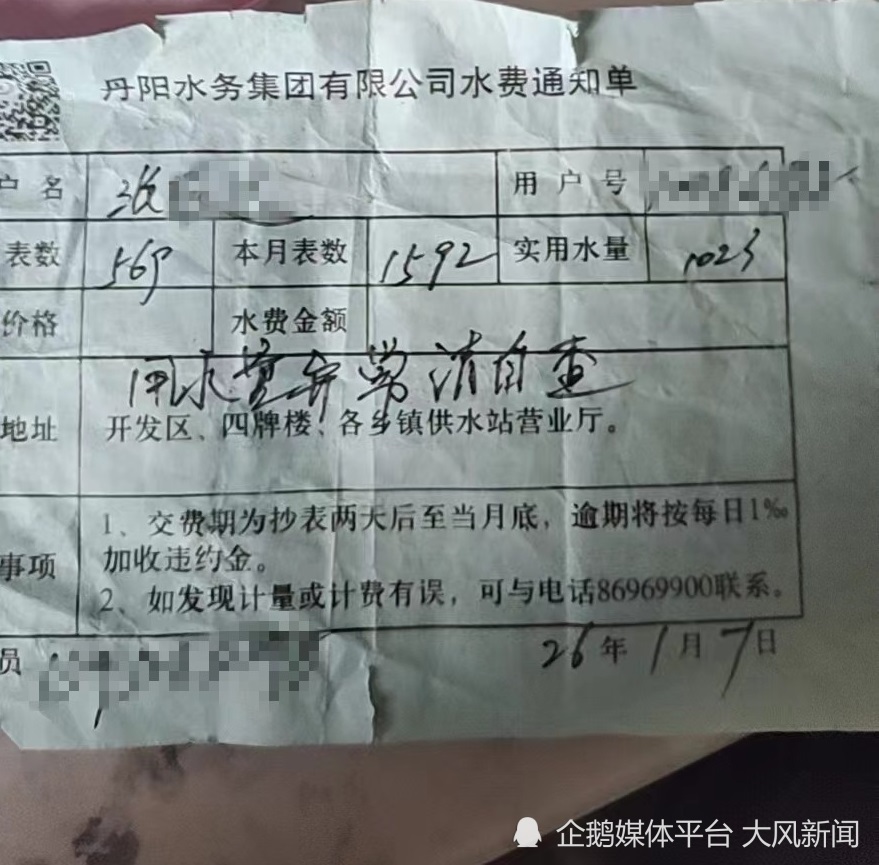 丹阳水务集团有限公司水费通知单
户 名 张 用 户 号
表数 569 本月表数 1592 实用水量 1023
价格 水费金额
用水量异常请自查
地址 开发区、四牌楼、各乡镇供水站营业厅。
1、交费期为抄表两天后至当月底，逾期将按每日1‰
事项 加收违约金。
2、如发现计量或计费有误，可与电话86969900联系。
员 26年1月7日
企鹅媒体平台 大风新闻